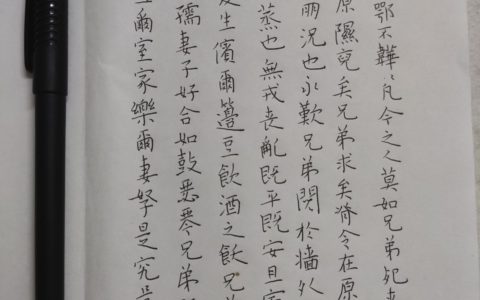 鄂不韡〻凡今之人莫如兄弟死
原隰裒矣兄弟求矣脊令在原
朋況也永歎兄弟鬩於牆外
烝也無戎喪亂既平既安且寧
友生儐爾籩豆飲酒之飫兄弟
孺妻子好合如鼓瑟琴兄弟
爾室家樂爾妻孥是究是